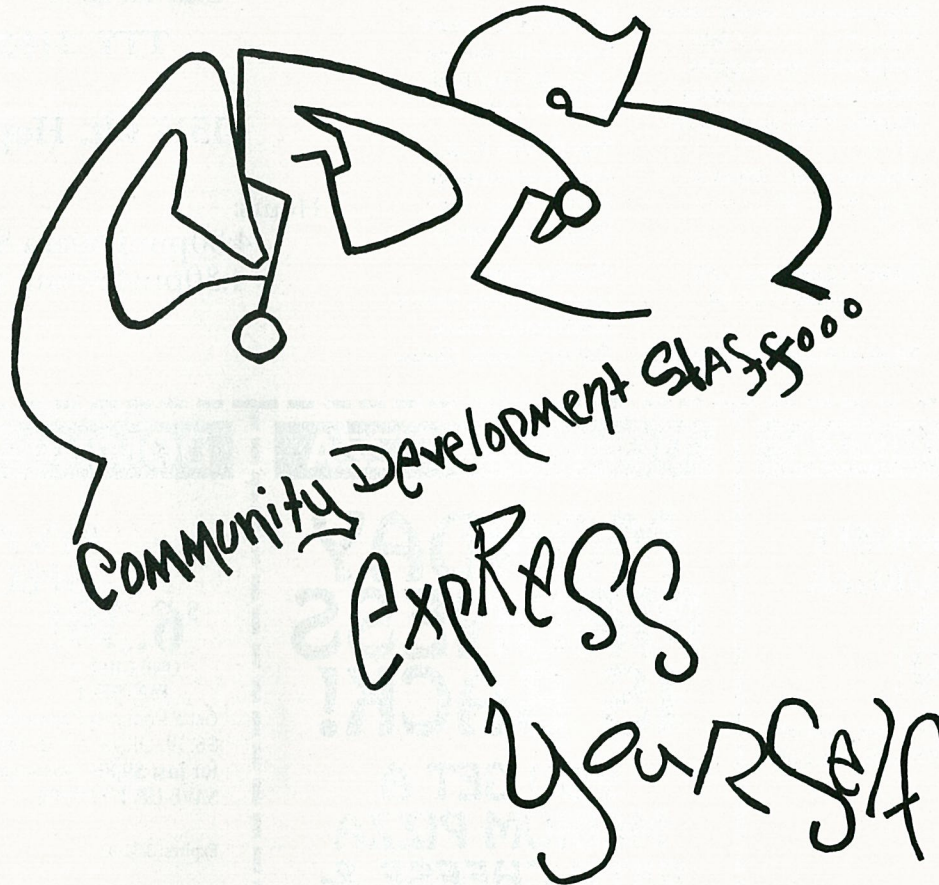 CDS
Community Development Staff...
Express
Yourself